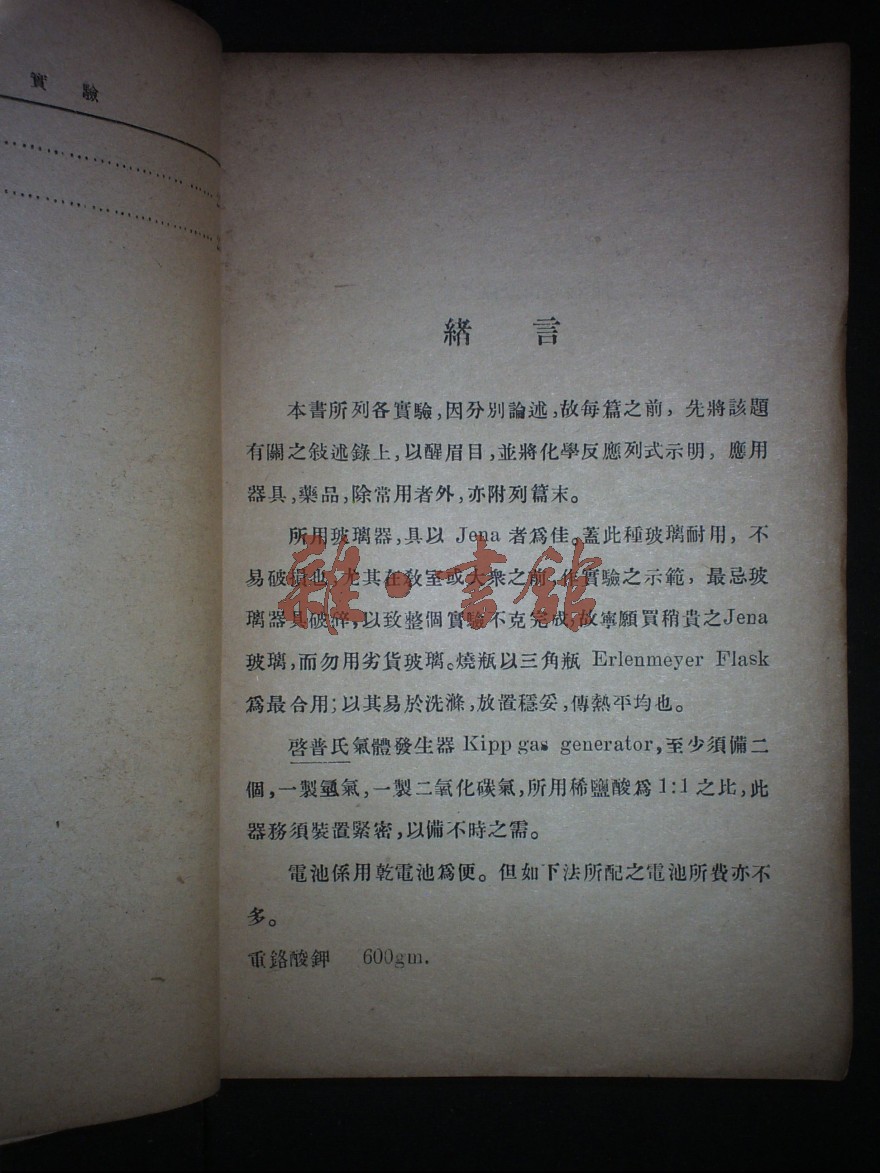 實驗
緒言
本書所列各實驗,因分別論述,故每篇之前,先將該題
有關之敍述錄上,以醒眉目,並將化學反應列式示明,應用
器具,藥品,除常用者外,亦附列篇末。
所用玻璃器,具以 Jena 者爲佳。蓋此種玻璃耐用,不
易破損也,尤其在敎室或大衆之前,作實驗之示範,最忌玻
璃器具破碎,以致整個實驗不克完成,故寧願買稍貴之Jena
玻璃,而勿用劣貨玻璃。燒瓶以三角瓶 Erlenmeyer Flask
爲最合用;以其易於洗滌,放置穩妥,傳熱平均也。
啓普氏氣體發生器 Kipp gas generator,至少須備二
個,一製氫氣,一製二氧化碳氣,所用稀鹽酸爲 1:1 之比,此
器務須裝置緊密,以備不時之需。
電池係用乾電池爲便。但如下法所配之電池所費亦不
多。
重鉻酸鉀 600gm.
雜·書館